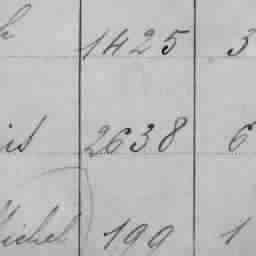 1425 3
is 2638 6
Michel 199 1